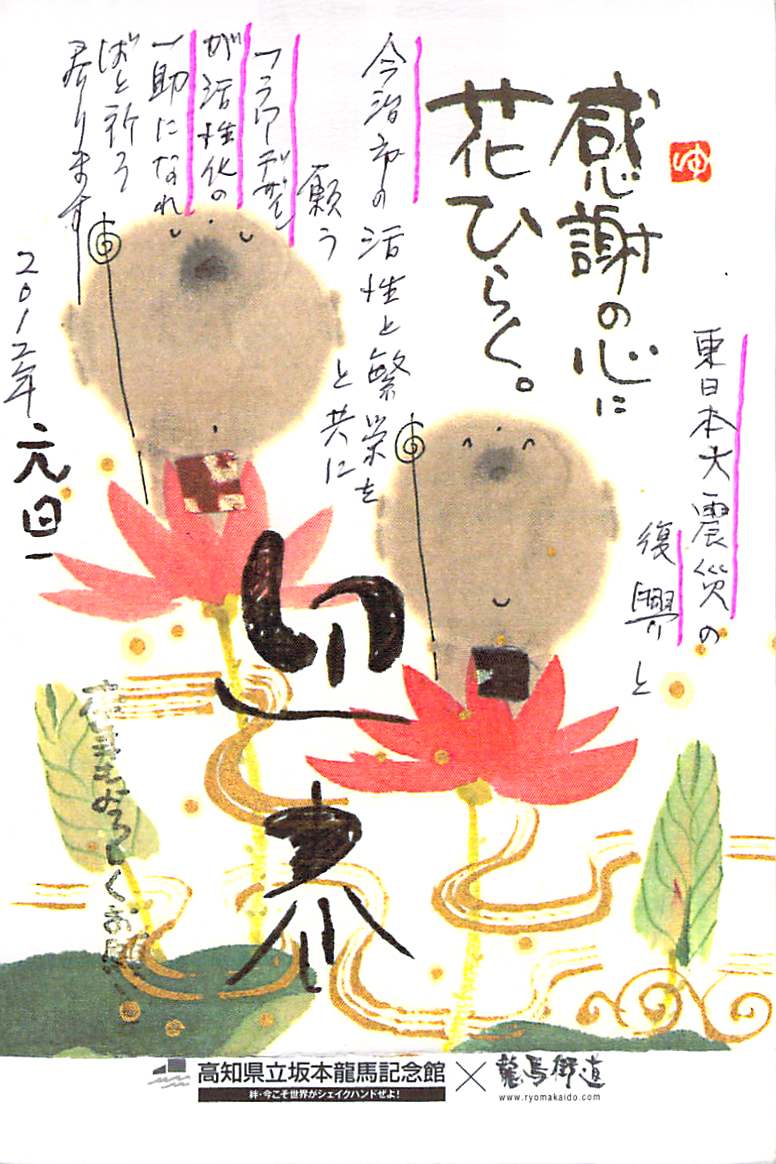 ゆ
感謝の心に
花ひらく。
東日本大震災の
復興と
今治市の活性と繁栄を
願うと共に
フラワーデザ
が活性化の
一助になれ
ばと祈って
居ります
2012年
元旦
迎春
高知県立坂本龍馬記念館×龍馬街道
絆・今こそ世界がシェイクハンドぜよ!
www.ryomakaido.com